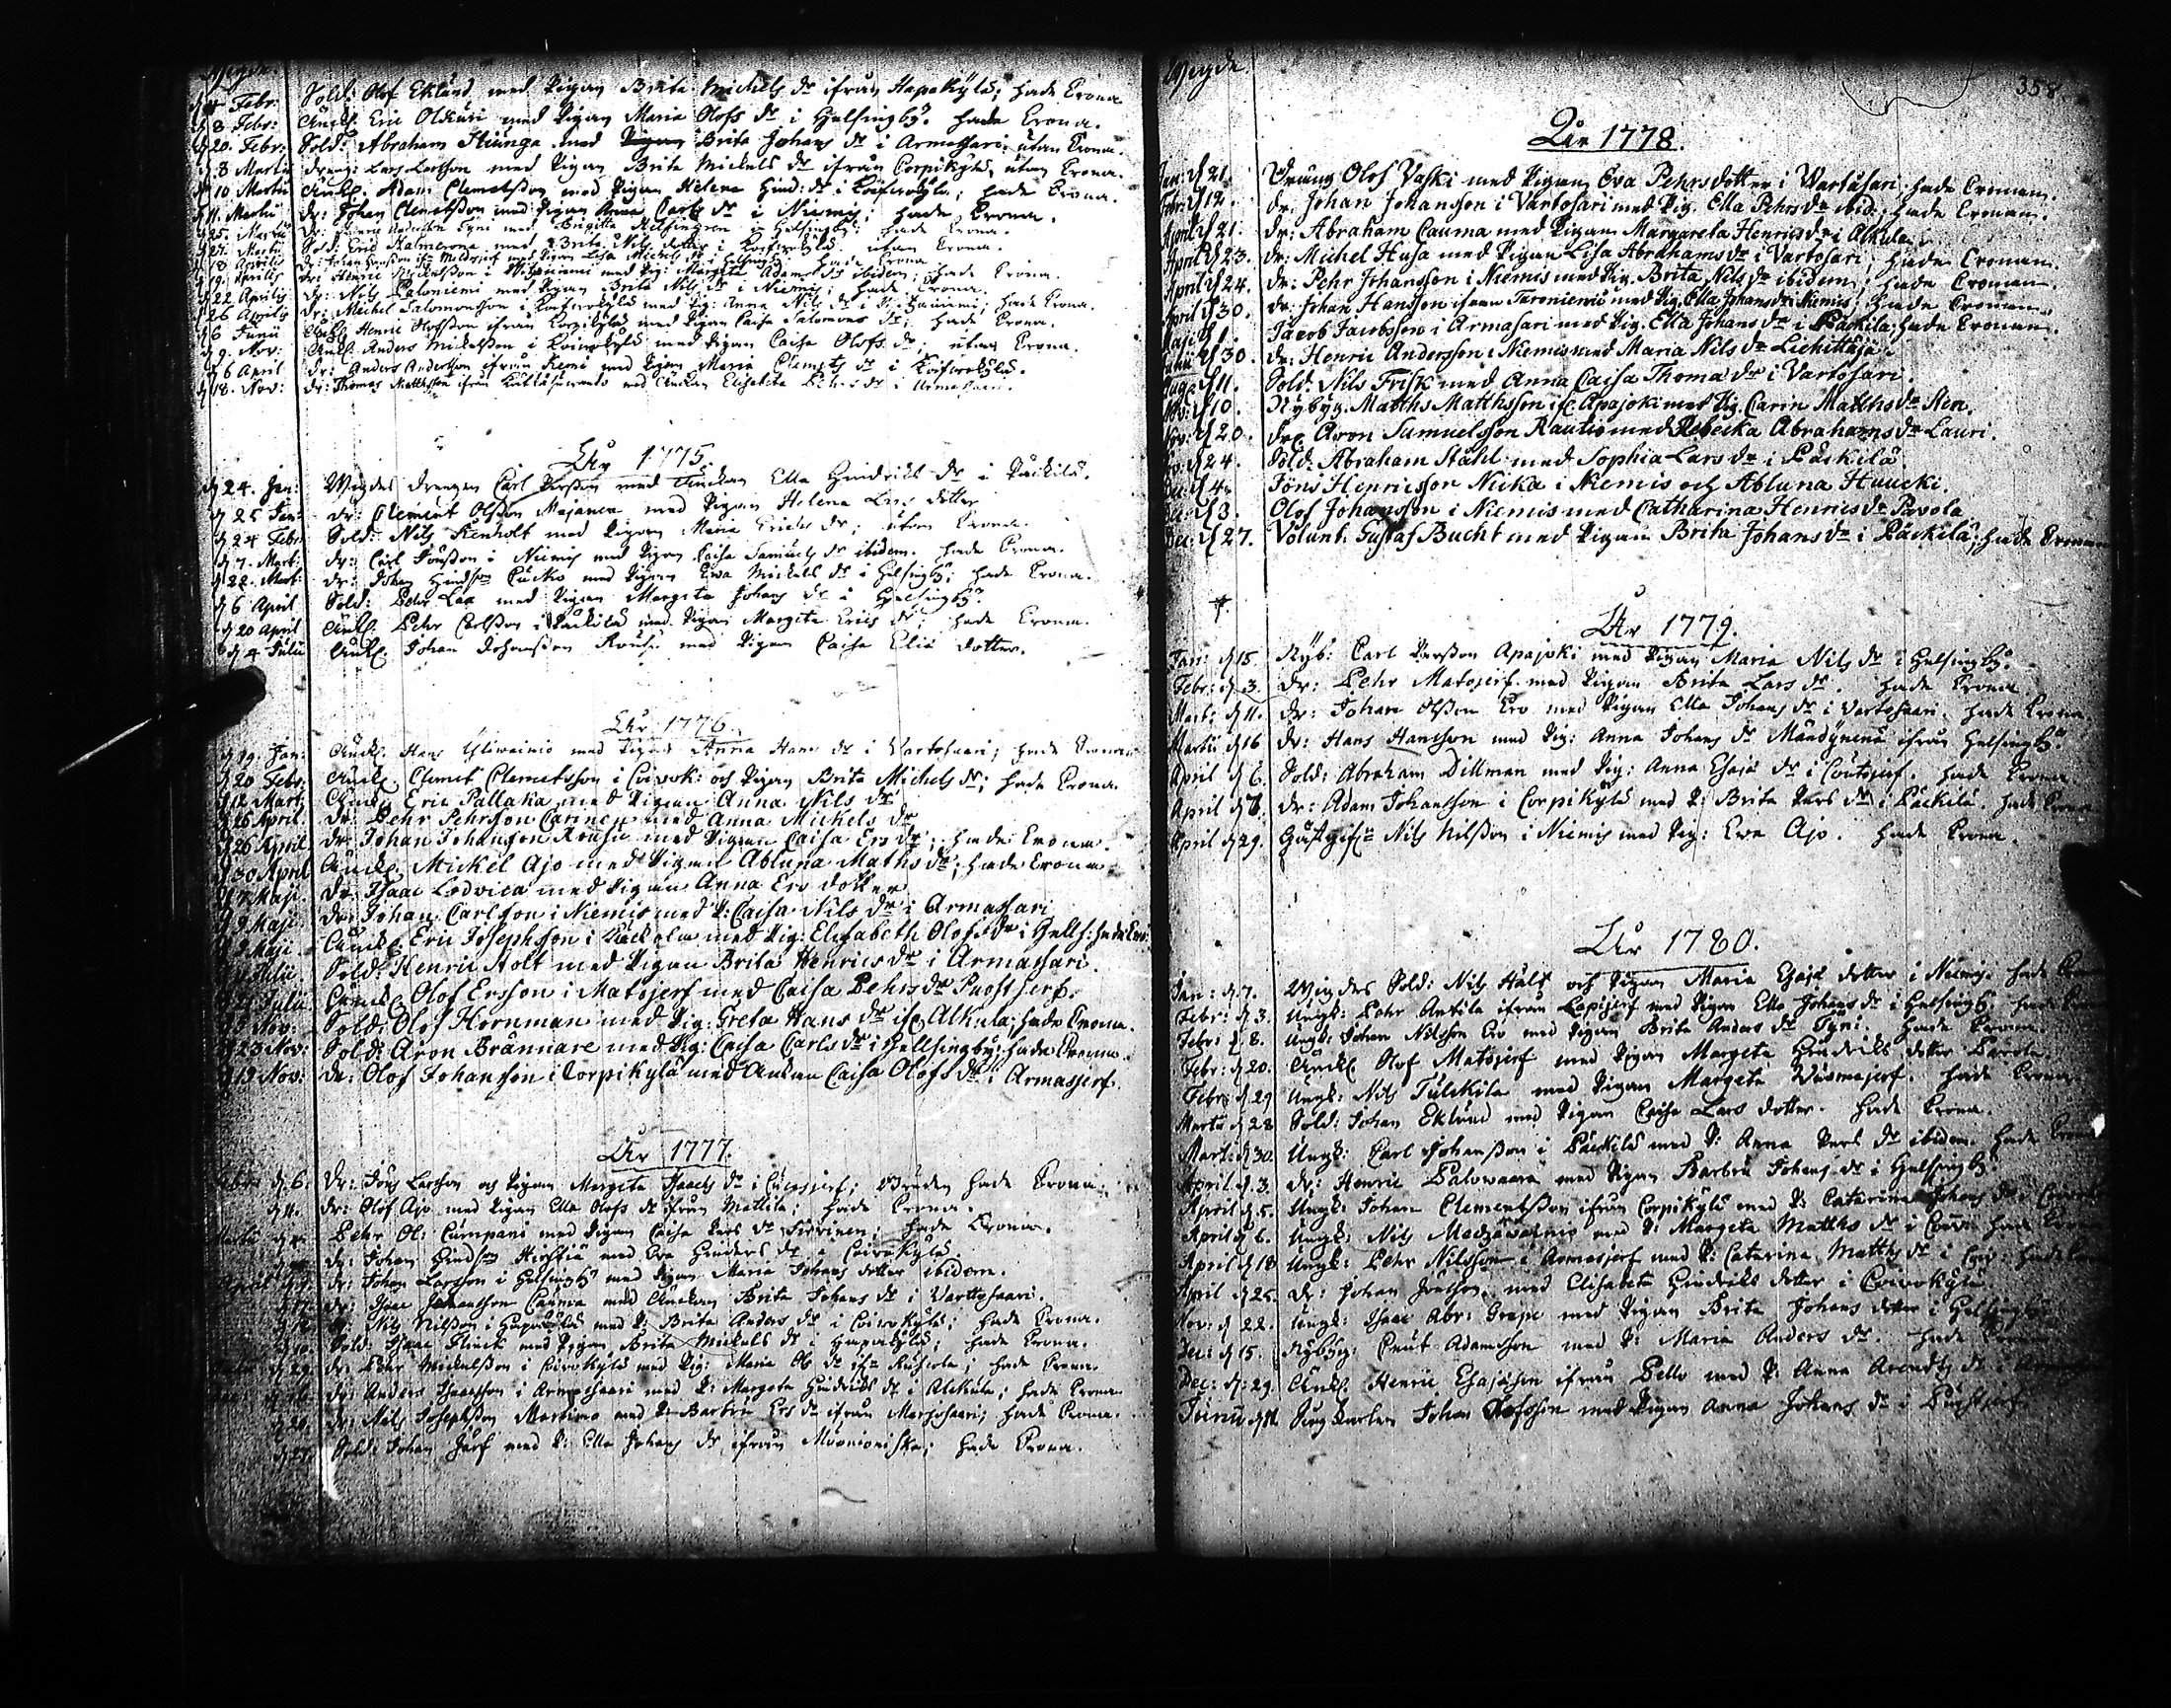 Wigde.
d. 4 Febr: Sold: Olof Eklund med Pigan Brita Michels dr ifrån Hapakylä; hade Crona
d. 8 Febr: Änkl. Eric Olkuri med Pigan Maria Olofs dr i Helsingby. hade Crona.
d. 20. Febr: Sold: Abraham Stiunga med Brita Johans dr i Armassari utan Crona.
d. 8 Martii dreng: Lars Larsson med Pigan Brita Mickels dr ifrån Corpikylä, utan Crona.
d. 10 Martii Änkl. Adam Clemetsson med Pigan Helena Hind: dr i Koivukylä; hade Crona.
d. 11. Martii dr: Johan Clemetsson med Pigan Anna Carls dr i Niemis; hade Crona.
d. 25. Martii Brigitta i Helsingby: hade Crona.
d. 27. Martii Sold: Eric med Brita Nils dotter i Koifvukylä. utan Crona.
Aprilis dr: Johan Hansson med Pigan Lisa Michels dr i Helsingby hade Crona
d. 19. Aprilis dr: Henric Mickelsson i med Pig: Margeta Adams dr ibidem; hade Crona.
d. 22 Aprilis dr: Nils Paloniemi med Pigan Brita Nils dr i Niemis; hade Crona.
d. 26 Aprilis dr: Michel Salomonsson i Koifvukylä med Pig: Anna Nils dr i hade Crona.
d. 6 Junii Henric Olofsson ifrån Korpikylä med Pigan Caisa Salomons dr; hade Crona.
d. 9. Nov: Änkl. Anders Mickelsson i Koivukylä med Pigan Caisa Olofs dr; utan Crona.
d. 6 April dr: Anders Andersson ifrån Kemi med Pigan Maria Clemets dr i Koifvukylä.
d. 18. Nov: dr: Thomas Matthsson ifrån med Änckan Elisabeta Pehrs dr i Armassaari.
År 1775
d. 24. Jan: Wigdes Drengen Carl Persson med Änckan Ella Hindriks dr i Päckilä.
d. 25 Jan: dr: Clement Olsson Majanen med Pigan Helena Lars dotter
d. 24 Febr: Sold: Nils Renholt med Pigan Maria Erichs dr; utan Crona.
d. 7. Mart: dr: Carl Jönsson i Niemis med Pigan Caisa Samuels dr ibidem. hade Crona.
d. 22. Mart: dr: Johan Hindsson Cucko med Pigan Ewa Mickels dr i Helsingby; hade Crona.
d. 6 April Sold: Pehr Lax med Pigan Margeta Johans dr i Helsingby.
d. 20 April Änkl. Pehr Carlsson i Päckilä med Pigan Margeta Erics dr; hade Crona.
d. 4 Julii Änkl. Johan Johansson Rousu med Pigan Caisa Elia dotter.
År 1776.
d. 19. Jan: Änckl. Hans Yliwainio med Pigan Anna Hans dr i Vartosaari; hade Cronan
d. 20 Febr: Änckl. Clemet Clemetsson i Coivok: och Pigan Brita Michels dr; hade Crona.
d. 12 Mart: Änckl. Eric Pallaka med Pigan Anna Nils dr
d. 16 April. Dr: Pehr Pehrsson Carinen med Anna Michels dr
d. 26 April. dr: Johan Johansson Rousu med Pigan Caisa Ers dr; hade Crona.
d. 30 April Änckl. Mickel Ajo med Pigan Abluna Maths dr; hade Crona
d. 7 Maji. dr: Isaac Lodvica med Pigan Anna Ero dotter
d. 9 Maji. dr: Johan Carlsson i Niemis med P: Caisa Nils dr i Armassari
d. 9 Maji. Änckl. Eric Josephsson i Päckola med Pig: Elisabeth Olofsdr i Hells: hade Cron:
Julii Sold: Henric Holt med Pigan Brita Henrics dr i Armassari.
Julii Änckl. Olof Ersson i Matojerf med Caisa Pehrs dr Puostjerf.
Nov: Sold: Olof Hornman med Pig: Greta Hans dr ifr. Alkula; hade Crona.
d. 23 Nov: Sold: Aron Brännare med Pig: Caisa Carls dr i Hellsingby; hade Crona.
d. 13 Nov: dr: Olof Johansson i Corpikylä med Ankan Caisa Olofs dr i Armasjerf.
År 1777.
d. 6. dr: Jöns Larsson och Pigan Margeta Isaacs dr i Cucasjerf; Bruden hade Crona.
d. 11. dr: Olof Ajo med Pigan Ella Olofs dr ifrån Mattila; hade Crona.
Pehr Ol: Cumpani med Pigan Caisa Pers dr Sirvinen; hade Crona.
dr: Johan Hindsson med Eva Hinders dr i Coivokylä.
dr: Johan Larsson i Helsingby med Pigan Maria Johans dotter ibidem.
d. 17. dr: Isac Johansson Cauma med Änckan Brita Johans dr i Vartosaari.
Nils Nilsson i Hapakylä med P: Brita Anders dr i Coivokylä; hade Crona.
Sold: Isaac Flinck med Pigan Brita Mickels dr i Hapakylä; hade Crona.
d. 29. dr: Pehr Mickelsson i Coivokylä med Pig: Maria Ol. dr ifrn Ruskola; hade Crona.
dr: Anders Isacsson i Armassaari med P: Margeta Hindriks dr i Alckula; hade Crona
d. 26. dr: Nils Josephsson Martimo med P: Barbru Ers dr ifrån Marjosaari; hade Crona.
d. 27. Sold: Johan Järf med P: Ella Johans dr, ifrån Muonioniska; hade Crona.
Wigde
358.
År 1778.
Jan: d 21. Dräng Olof Vaski med Pigan Eva Pehrsdotter i Wartusari; hade Cronan.
Febr: d 12. dr: Johan Johansson i Vartosari med Pig. Ella Pehrs dr ibid.; hade Cronan.
April d 21. dr: Abraham Cauma med Pigan Margareta Henricsdr i Alkula
April d 23. dr: Michel Husa med Pigan Lisa Abrahams dr i Vartosari; hade Cronan.
April d 24. dr: Pehr Johansson i Niemis med Pig. Brita Nils dr ibidem; hade Cronan.
April d 30. dr: Johan Hansson ifrån med Pig. Ella Johans dr i Niemis; hade Cronan.
Maji d Jacob Jacobsson i Armasari med Pig. Ella Johans dr i Päckila; hade Cronan.
d 30. dr: Henric Andersson i Niemis med Maria Nils dr Liehittäjä.
Aug: d 11. Sold. Nils Frisk med Anna Caisa Thoma dr i Vartosari.
Nov: d 10. Nybyg. Matths Matthsson ifr. Apajoki med Pig. Carin Matths dr Ren.
Nov: d 20. dr: Aron Samuelsson Rautio med Rebecka Abrahams dr Lauri.
d 24. Sold. Abraham Ståhl med Sophia Lars dr i Päckilä
Dec: d 4. Jöns Henricsson Nicka i Niemis och Abluna Huucki.
d 3. Olof Johansson i Niemis med Catharina Henrics dr Pavola
Dec: d 27. Volunt. Gustaf Bucht med Pigan Brita Johans dr i Päckilä; hade Cronan
År 1779.
Jan: d. 15. Nyb: Carl Persson Apajoki med Pigan Maria Nils dr i Helsingby.
Febr: d. 3. dr: Pehr Matojerf med Pigan Brita Lars dr. hade Crona.
Mart: d. 11. dr: Johan Olsson Ero med Pigan Ella Johans dr i Vartosaari. hade Crona.
Martii d. 16 dr: Hans Hansson med Pig: Anna Johans dr Mändynenä ifrån Helsingby.
April d. 6. Sold: Abraham Dillman med Pig: Anna Esajæ dr i Coutojerf. hade Crona.
April d. 7. dr: Adam Johansson i Corpikylä med P: Brita Pers dr i Päckilä. hade Crona
April d. 29. Gustgifv. Nils Nilsson i Niemis med Pig: Ewa Ajo. hade Crona.
År 1780.
Jan: d. 7. Wigdes Sold: Nils Hult och Pigan Maria Esajæ dotter i Niemis. hade
Febr: d. 3. Ungk: Pehr Antila ifrån med Pigan Ella Johans dr i Helsingby hade
Febr: d. 8. Ungk: Johan Nilsson Ero med Pigan Brita Anders dr Fyni. hade Crona.
Febr: d. 20. Änckl. Olof Matojerf med Pigan Margeta Hindriks dotter Pavola
Febr: d. 29 Ungk: Nils Tulkila med Pigan Margeta Wusmajerf. hade Crona.
Martii d. 28 Sold: Johan Eklund med Pigan Caisa Lars dotter. hade Crona.
Mart: d. 30. Ungk: Carl Johansson i Päckilä med P: Anna Pers dr ibidem. hade
April d. 3. dr: Henric Palowaara med Pigan Barbru Johans dr i Helsingby.
April d. 5. Ungk: Johan Clementsson ifrån Corpikylä med P: Catarina Johans dr
April d. 6. Ungk: Nils med P: Margeta Matths dr i hade
April d. 18 Ungk: Pehr Nilsson i Armasjerf med P: Catarina Matths dr i
April d. 25. dr: Johan Jönsson med Elisabeta Hindriks dotter i Coivokylä
Nov: d. 22. Ungk: Isaac Abr: Grape med Pigan Brita Johans dotter i Helsingby
Dec: d. 15. Nybyg: Cnut Adamsson med P: Maria Anders dr. hade
Dec: d. 29. Änkl. Henric Esajæson ifrån Pello med P: Anna Arendts dr
Junii d. 11. Ungkarlen Johan Olofsson med Pigan Anna Johans dr i Puostjerf.